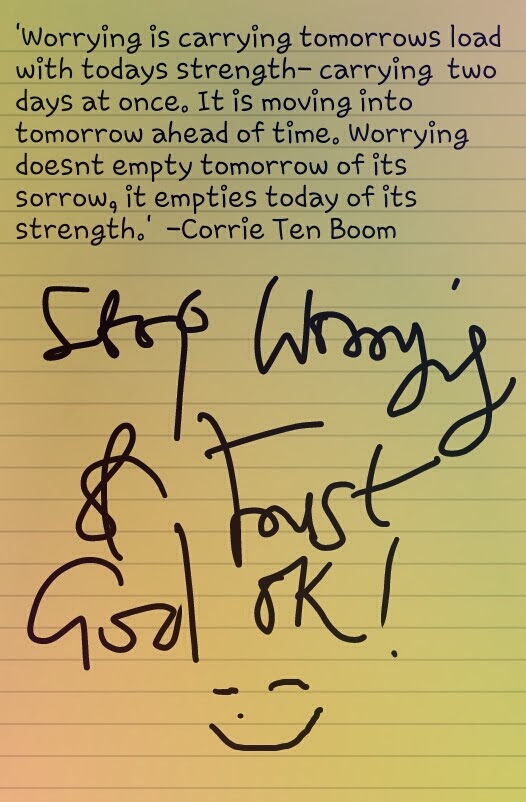 'Worrying is carrying tomorrows load
with todays strength- carrying two
days at once. It is moving into
tomorrow ahead of time. Worrying
doesnt empty tomorrow of its
sorrow, it empties today of its
strength.' -Corrie Ten Boom
Stop Worrying
& Trust
God OK!